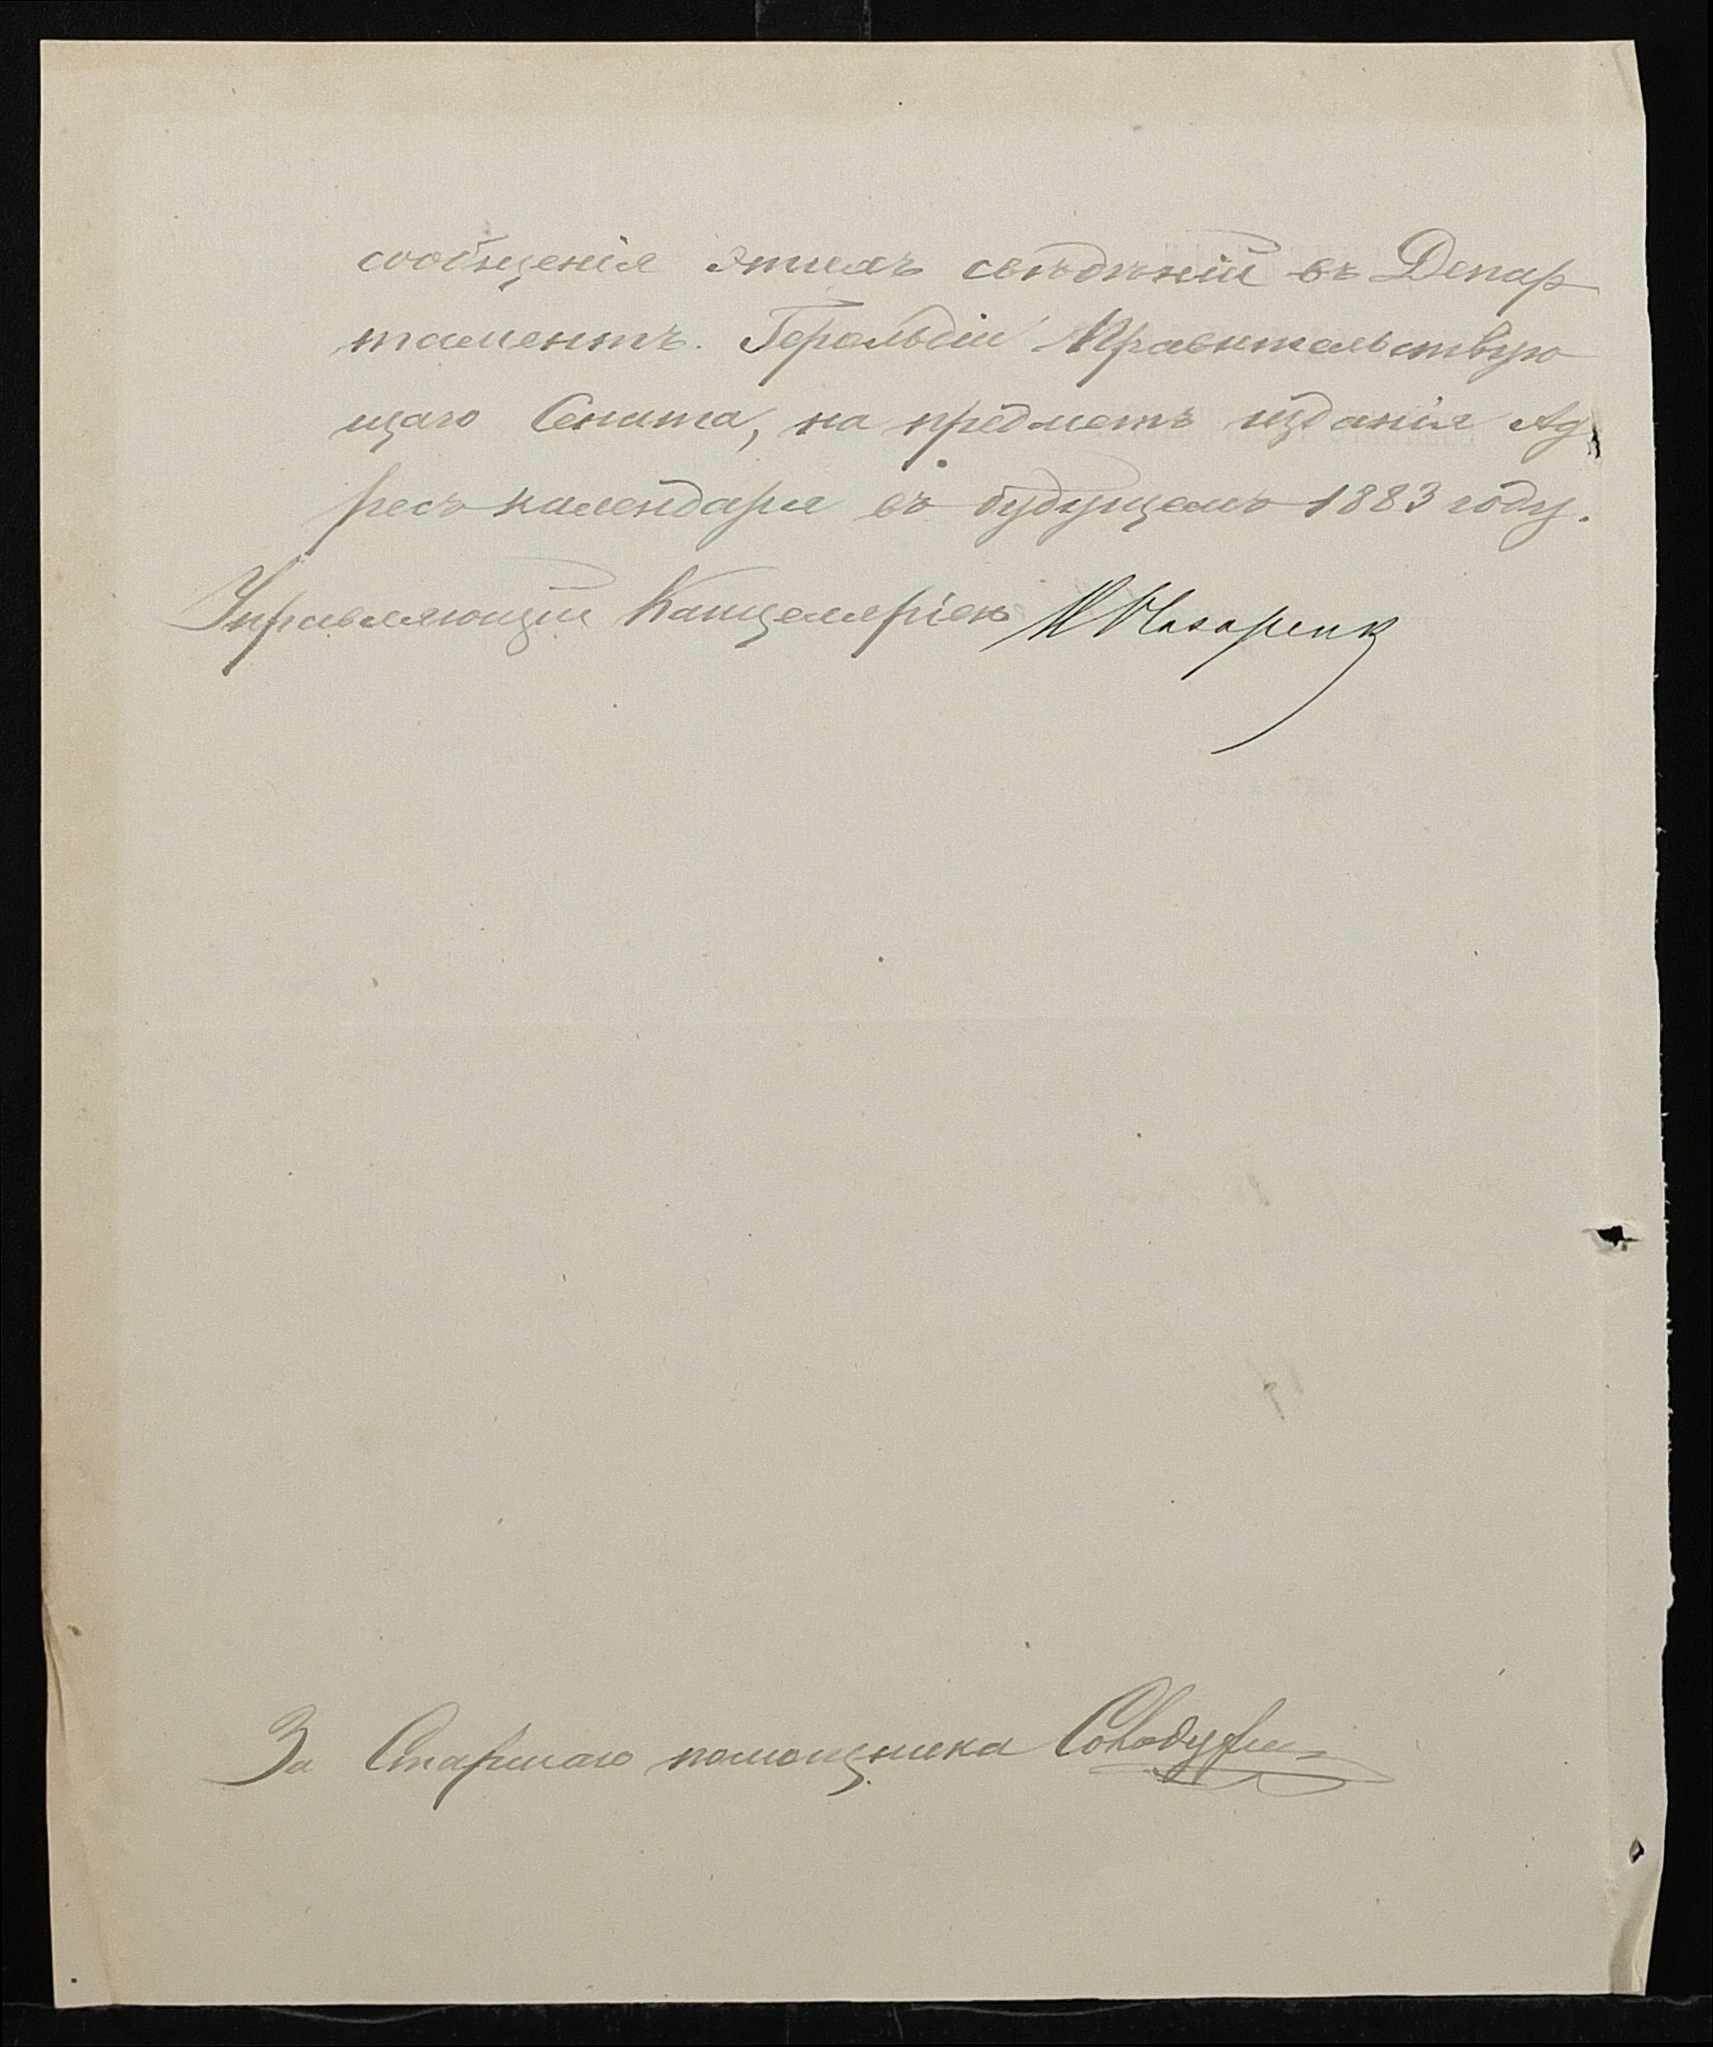 сообщенія этихъ свѣдѣній въ Депар
таментъ. Герольдіи Правительствую
щаго Сената, на предметъ изданія Ад
ресъ календаря въ будущемъ 1883 году.
Управляющій Канцеляріею
За Старшаго помощника